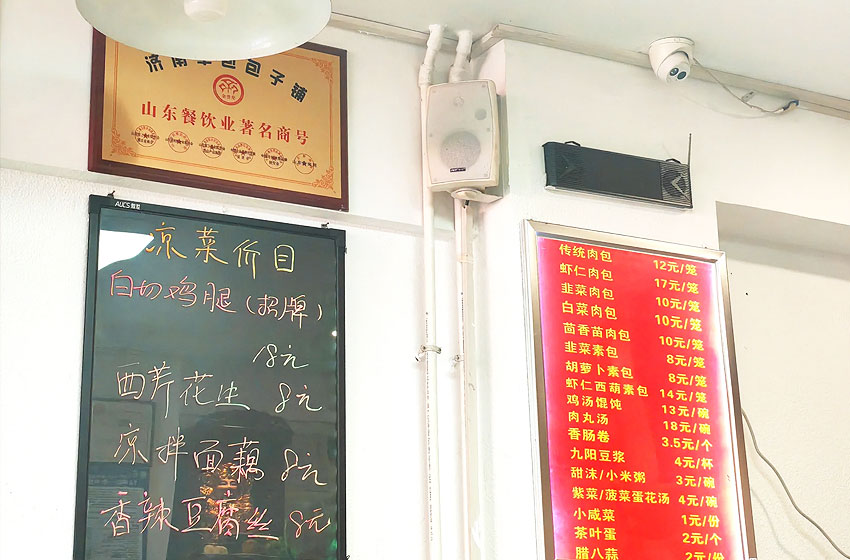 济南草包包子铺
山东餐饮业著名商号
AUCS
凉菜价目
白切鸡腿(招牌)
18元
西芹花生 8元
凉拌面藕 8元
香辣豆腐丝 8元
传统肉包 12元/笼
虾仁肉包 17元/笼
韭菜肉包 10元/笼
白菜肉包 10元/笼
茴香苗肉包 10元/笼
韭菜素包 8元/笼
胡萝卜素包 8元/笼
虾仁西葫素包 14元/笼
鸡汤馄饨 13元/碗
肉丸汤 18元/碗
香肠卷 3.5元/个
九阳豆浆 4元/杯
甜沫/小米粥 3元/碗
紫菜/菠菜蛋花汤 4元/碗
小咸菜 1元/份
茶叶蛋 2元/个
腊八蒜 2元/份